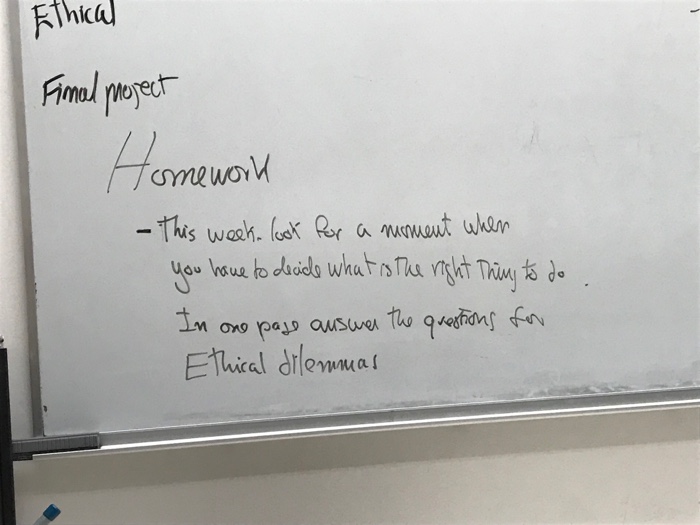 Ethical
Final project
Homework
- This week. look for a moment when
you have to decide what is the right Thing to do.
In one page answer the questions for
Ethical dilemmas